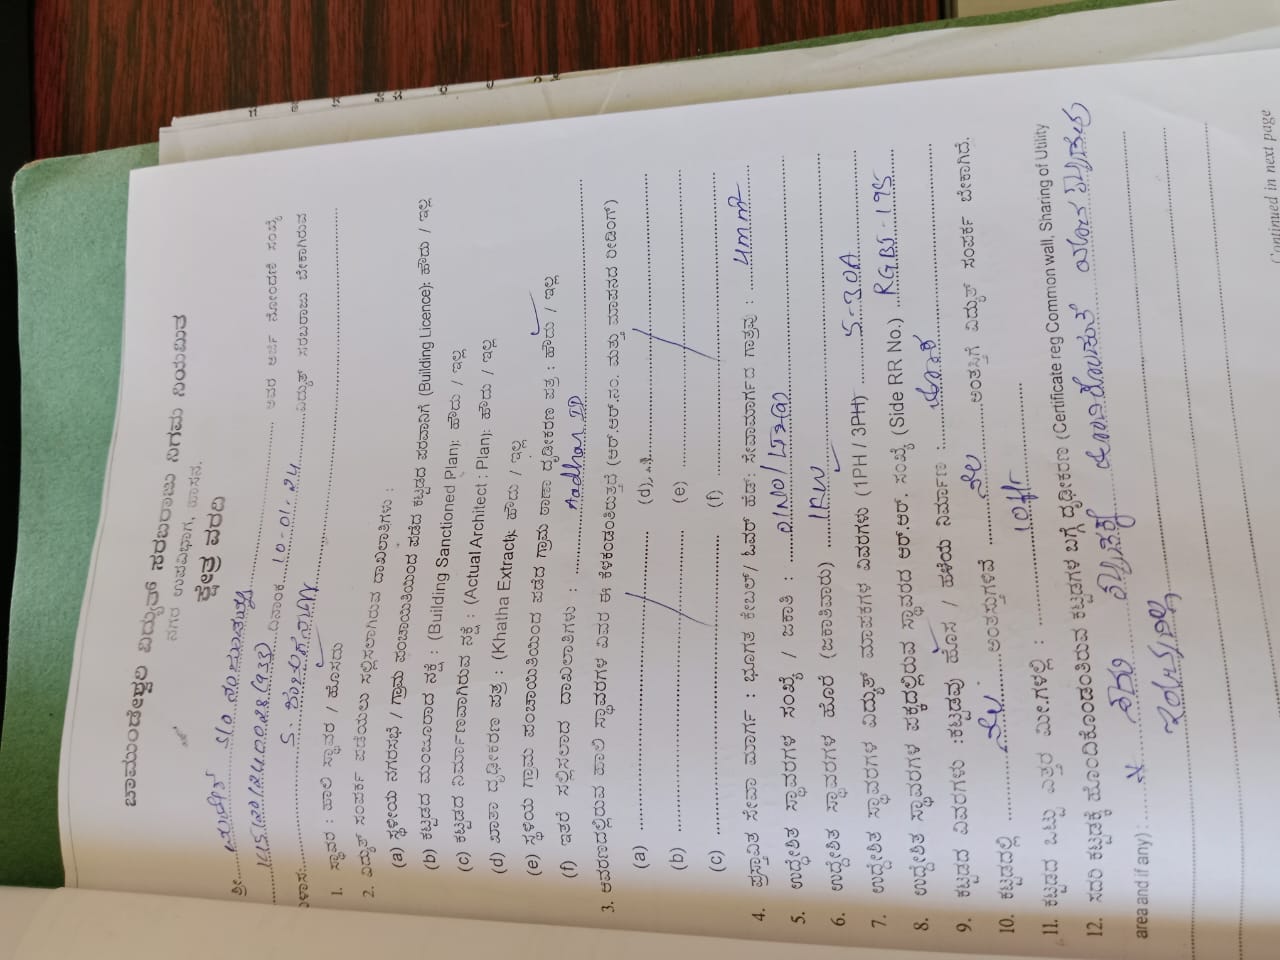 ಚಾಮುಂಡೇಶ್ವರಿ ವಿದ್ಯುತ್ ಸರಬರಾಜು ನಿಗಮ ನಿಯಮಿತ
ನಗರ ಉಪವಿಭಾಗ, ಹಾಸನ.
ಕ್ಷೇತ್ರ ವರದಿ
ಶ್ರೀ ........ S/O ........ ಅವರ ಅರ್ಜಿ ನೋಂದಣಿ ಸಂಖ್ಯೆ
ದಿನಾಂಕ 10-01-24 ವಿದ್ಯುತ್ ಸರಬರಾಜು ಬೇಕಾಗಿರುವ
1. ಸ್ಥಾವರ : ಹಾಲಿ ಸ್ಥಾವರ / ಹೊಸದು
2. ವಿದ್ಯುತ್ ಸಂಪರ್ಕ ಪಡೆಯಲು ಸಲ್ಲಿಸಲಾಗಿರುವ ದಾಖಲಾತಿಗಳು :
(a) ಸ್ಥಳೀಯ ನಗರಸಭೆ / ಗ್ರಾಮ ಪಂಚಾಯಿತಿಯಿಂದ ಪಡೆದ ಕಟ್ಟಡದ ಪರವಾನಿಗೆ (Building Licence): ಹೌದು / ಇಲ್ಲ
(b) ಕಟ್ಟಡದ ಮಂಜೂರಾದ ನಕ್ಷೆ : (Building Sanctioned Plan): ಹೌದು / ಇಲ್ಲ
(c) ಕಟ್ಟಡದ ನಿರ್ಮಾಣವಾಗಿರುವ ನಕ್ಷೆ : (Actual Architect : Plan): ಹೌದು / ಇಲ್ಲ
(d) ಖಾತಾ ದೃಢೀಕರಣ ಪತ್ರ : (Khatha Extract): ಹೌದು / ಇಲ್ಲ
(e) ಸ್ಥಳೀಯ ಗ್ರಾಮ ಪಂಚಾಯಿತಿಯಿಂದ ಪಡೆದ ಗ್ರಾಮ ಠಾಣಾ ದೃಢೀಕರಣ ಪತ್ರ : ಹೌದು / ಇಲ್ಲ
(f) ಇತರೆ ಸಲ್ಲಿಸಲಾದ ದಾಖಲಾತಿಗಳು : Aadhar ID
3. ಆವರಣದಲ್ಲಿರುವ ಹಾಲಿ ಸ್ಥಾವರಗಳ ವಿವರ ಈ ಕೆಳಕಂಡಂತಿರುತ್ತದೆ (ಆರ್.ಆರ್.ನಂ. ಮತ್ತು ಮಾಪನದ ರೀಡಿಂಗ್)
(a) (d)
(b) (e)
(c) (f)
4. ಪ್ರಸ್ತಾವಿತ ಸೇವಾ ಮಾರ್ಗ : ಭೂಗತ ಕೇಬಲ್/ ಓವರ್ ಹೆಡ್: ಸೇವಾಮಾರ್ಗದ ಗಾತ್ರವು : 4mm²
5. ಉದ್ದೇಶಿತ ಸ್ಥಾವರಗಳ ಸಂಖ್ಯೆ / ಜಕಾತಿ : 01NO/LT2(a)
6. ಉದ್ದೇಶಿತ ಸ್ಥಾವರಗಳ ಹೊರೆ (ಜಕಾತಿವಾರು) 1KW
7. ಉದ್ದೇಶಿತ ಸ್ಥಾವರಗಳ ವಿದ್ಯುತ್ ಮಾಪಕಗಳ ವಿವರಗಳು (1PH / 3PH) 5-30A
8. ಉದ್ದೇಶಿತ ಸ್ಥಾವರಗಳ ಪಕ್ಕದಲ್ಲಿರುವ ಸ್ಥಾವರದ ಆರ್.ಆರ್. ಸಂಖ್ಯೆ (Side RR No.) RGB5-195
9. ಕಟ್ಟಡದ ವಿವರಗಳು :ಕಟ್ಟಡವು ಹೊಸ / ಹಳೆಯ ನಿರ್ಮಾಣ :
10. ಕಟ್ಟಡದಲ್ಲಿ ನೆಲ ಅಂತಸ್ತುಗಳಿವೆ ನೆಲ ಅಂತಸ್ತಿಗೆ ವಿದ್ಯುತ್ ಸಂಪರ್ಕ ಬೇಕಾಗಿದೆ.
11. ಕಟ್ಟಡದ ಒಟ್ಟು ಎತ್ತರ ಮೀ.ಗಳಲ್ಲಿ : 10ft
12. ಸದರಿ ಕಟ್ಟಡಕ್ಕೆ ಹೊಂದಿಕೊಂಡಂತಿರುವ ಕಟ್ಟಡಗಳ ಬಗ್ಗೆ ದೃಢೀಕರಣ (Certificate reg Common wall, Sharing of Utility
area and if any) : ಸದರಿ
Continued in next page